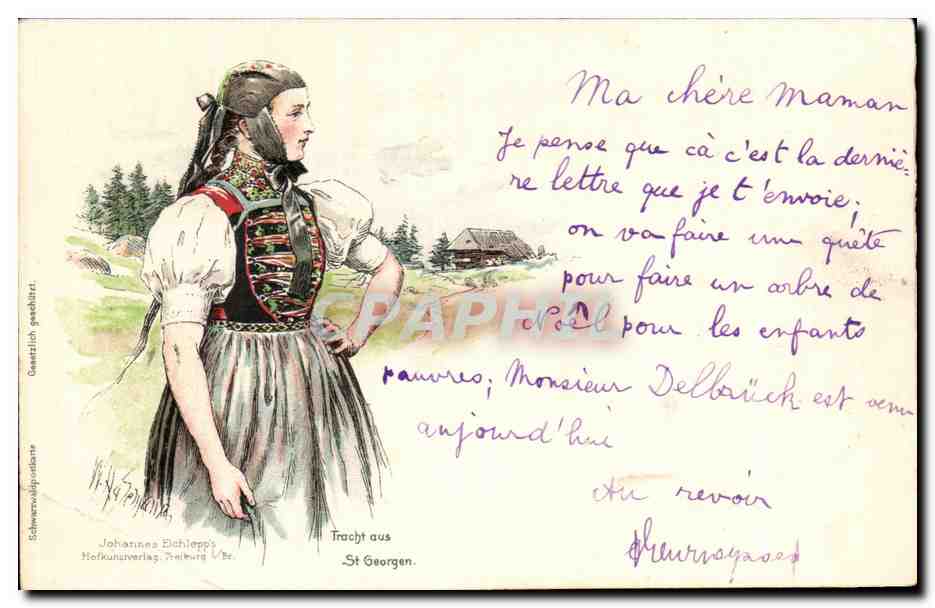 Ma chère Maman
Je pense que cà c'est la derniè-
re lettre que je t'envoie;
on va faire une quête
pour faire un arbre de
Noël pour les enfants
pauvres; Monsieur Delbrück est venu
aujourd'hui
Au revoir
Gesetzlich geschützt.
Schwarzwaldpostkarte
Johannes Elchlepp's
Hofkunstverlag, Freiburg i/Br.
Tracht aus
St Georgen.
CPAPHIL